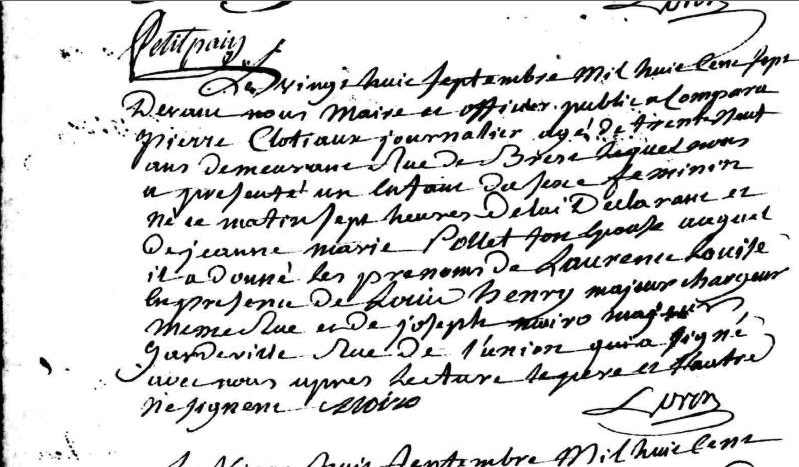 Petitpain
Le vingt huit septembre Mil huit Cent sept
Devant nous Maire et officier public a Comparu
pierre Clotiaux journalier agé de trente neuf
ans demeurant Rue de lequel nous
a presenté un Enfant du sexe feminin
né ce matin sept heures De lui Declarant et
De jeanne marie Pollet son Epouse auquel
il a donné les prenoms de Laurence Louise
En presence De Louis henry majeur chargeur
meme Rue et de joseph noiro majeur
Gardeville Rue de l'union qui a signé
avec nous apres Lecture le pere et l'autre
ne signent noiro
Le Vingt huit septembre Mil huit Cent